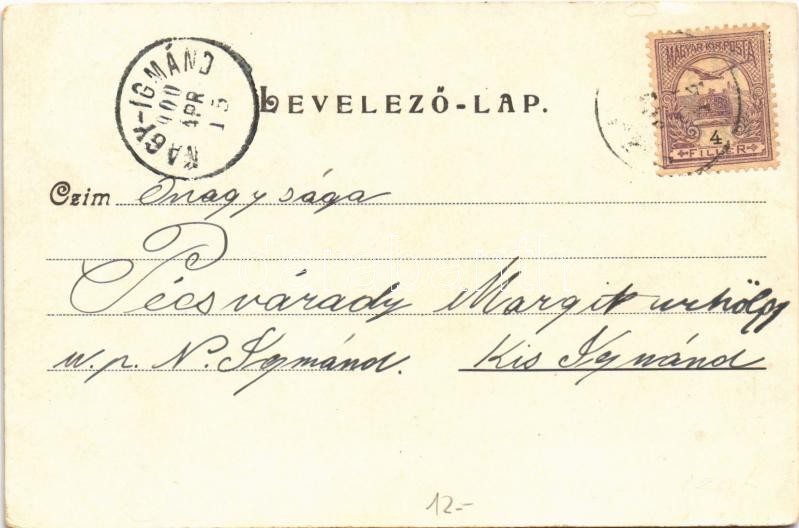 NAGY-IGMÁND
900
APR
15
LEVELEZŐ-LAP.
MAGYAR KIR. POSTA
4
FILLÉR
Czim Őnagysága
Pécsvárady Margit urhölgy
u. p. N. Igmánd. Kis Igmánd
12-